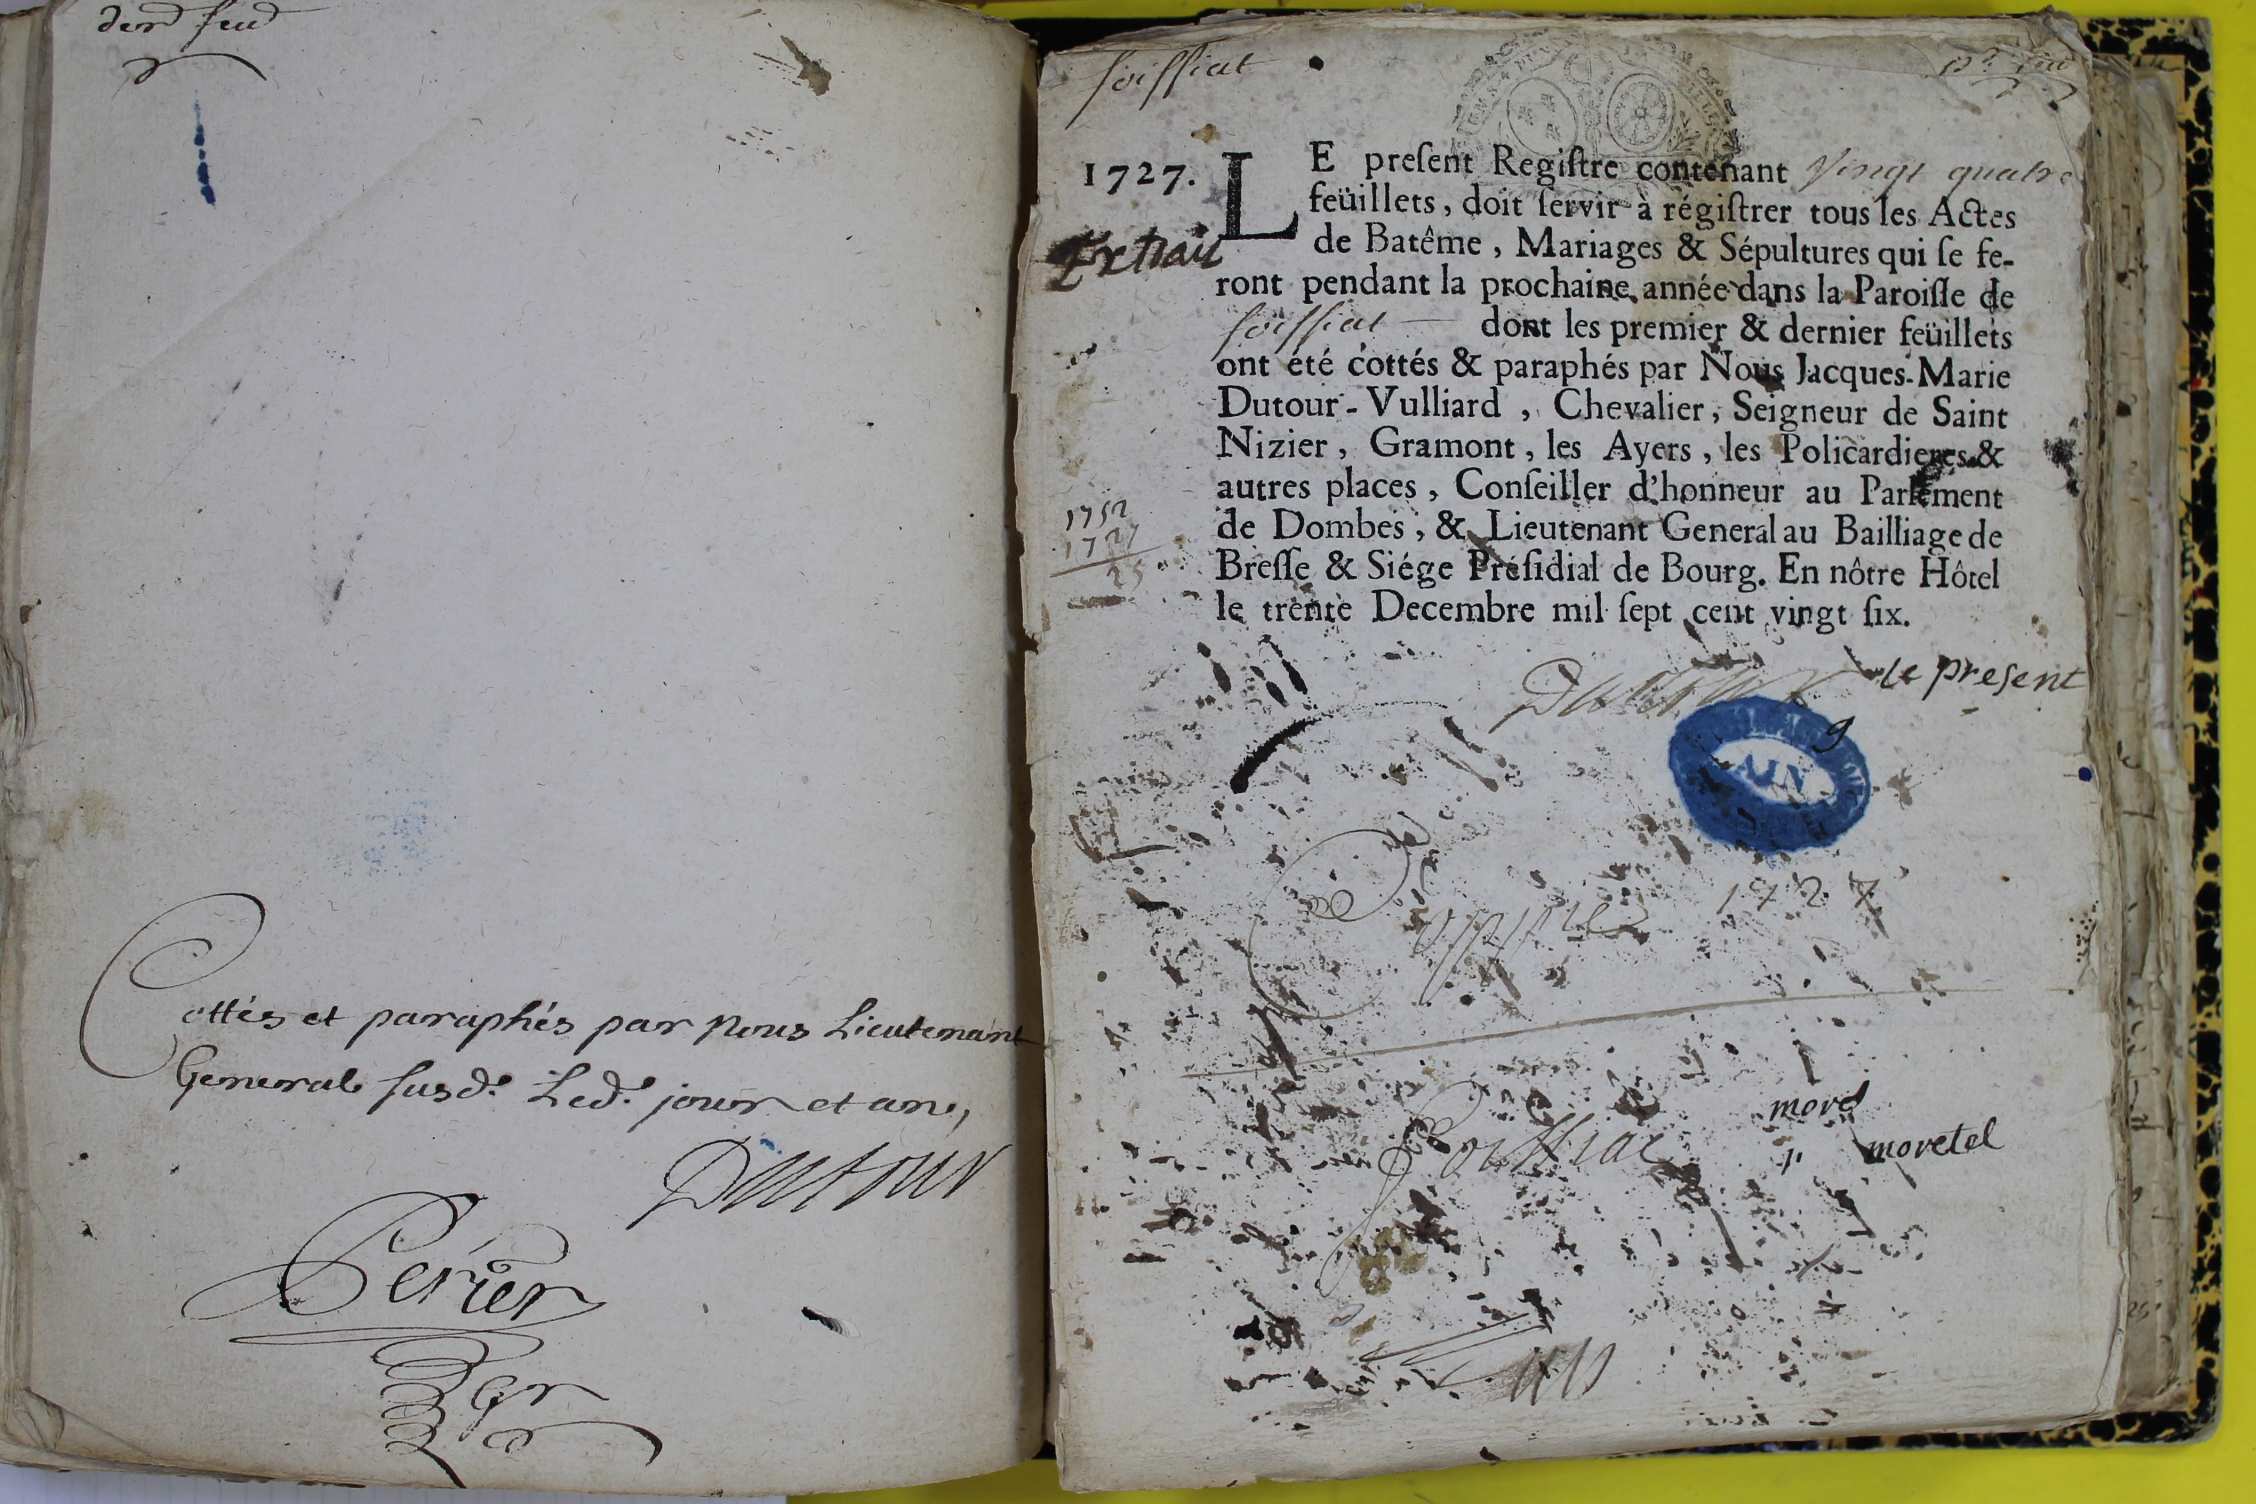 der feu
Cottés et paraphés par nous Lieutenant
General susd. Led. jour et an,
Dutour
Périer
gr
foissiat
pr. feu
1727.
LE preſent Regiſtre contenant vingt quatre
feüillets, doit ſervir à régiſtrer tous les Actes
de Batême, Mariages & Sépultures qui ſe fe-
ront pendant la prochaine année dans la Paroiſſe de
foissiat dont les premier & dernier feüillets
ont été cottés & paraphés par Nous Jacques-Marie
Dutour-Vulliard, Chevalier, Seigneur de Saint
Nizier, Gramont, les Ayers, les Policardieres &
autres places, Conſeiller d'honneur au Parlement
de Dombes, & Lieutenant General au Bailliage de
Breſſe & Siége Préſidial de Bourg. En nôtre Hôtel
le trente Decembre mil ſept cent vingt ſix.
Extrait
1752
1727
25
Dutour
le present
9
AIN
1727
morel
Foissiat
moretel